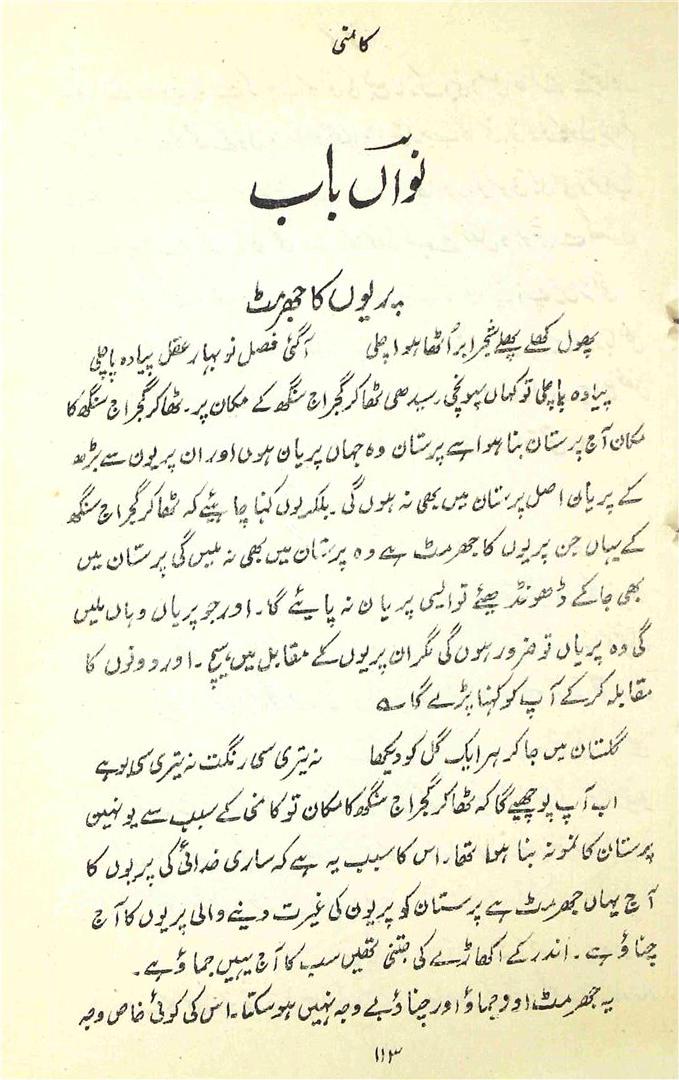 کامنی
نواں باب
پریوں کا جھرمٹ
پھول کھلے پھلے شجر ابر اُٹھا ہوا چلی آگئی فصل نو بہار عقل پیادہ پا چلی
پیادہ پا چلی تو کہاں پہونچی۔ سیدھی ٹھاکر گجراج سنگھ کے مکان پر۔ ٹھاکر گجراج سنگھ کا
مکان آج پرستان بنا ہوا ہے پرستان وہ جہاں پریان ہوں اور ان پریون سے بڑھ
کے پریان اصل پرستان میں بھی نہ ہوں گی۔ بلکہ یوں کہنا چاہئیے کہ ٹھاکر گجراج سنگھ
کے یہاں جن پریوں کا جھرمٹ ہے وہ پرستان میں بھی نہ ملیں گی پرستان میں
بھی جا کے ڈھونڈ ھیئے تو ایسی پریان نہ پایئے گا۔ اور جو پریاں وہاں ملیں
گی وہ پریاں تو ضرور ہوں گی مگر ان پریوں کے مقابل میں ہیچ۔ اور دونوں کا
مقابلہ کر کے آپ کو کہنا پڑے گا ؎
گلستان میں جا کر ہر ایک گل کو دیکھا نہ تیری سی رنگت نہ تیری سی بو ہے
اب آپ پوچھیے گا کہ ٹھاکر گجراج سنگھ کا مکان تو کامنی کے سبب سے یونہین
پرستان کا نمونہ بنا ہوا تھا۔ اس کا سبب یہ ہے کہ ساری خدائی کی پریوں کا
آج یہاں جھرمٹ ہے پرستان کو پریون کی غیرت دینے والی پریوں کا آج
چناؤ ہے۔ اندر کے اکھاڑے کی جتنی تھیں سب کا آج یہیں جماؤ ہے۔
یہ جھرمٹ اور جماؤ اور چناؤ بے وجہ نہیں ہو سکتا۔ اس کی کوئی خاص وجہ
۱۱۳